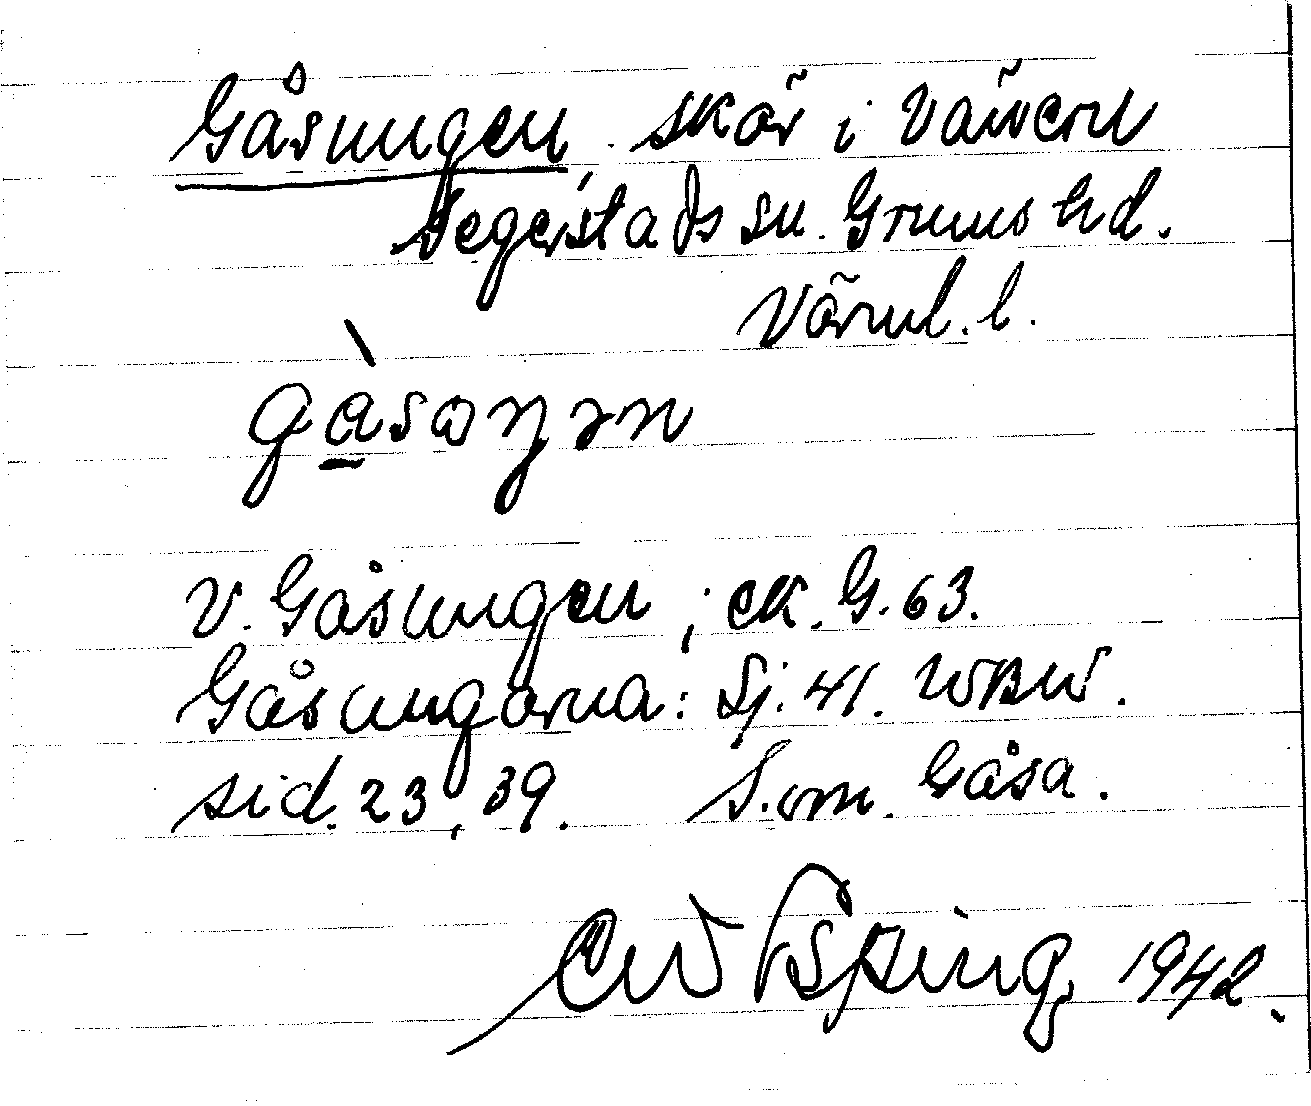 Gåsungen, skär i Vänern
Segerstads sn. Grums hd.
Värml. l.
gàsoŋən
V. Gåsungen; ek. G. 63.
Gåsungarna: Sj. 41. WBW.
sid. 23, 39. S. om Gåsa.
1942.